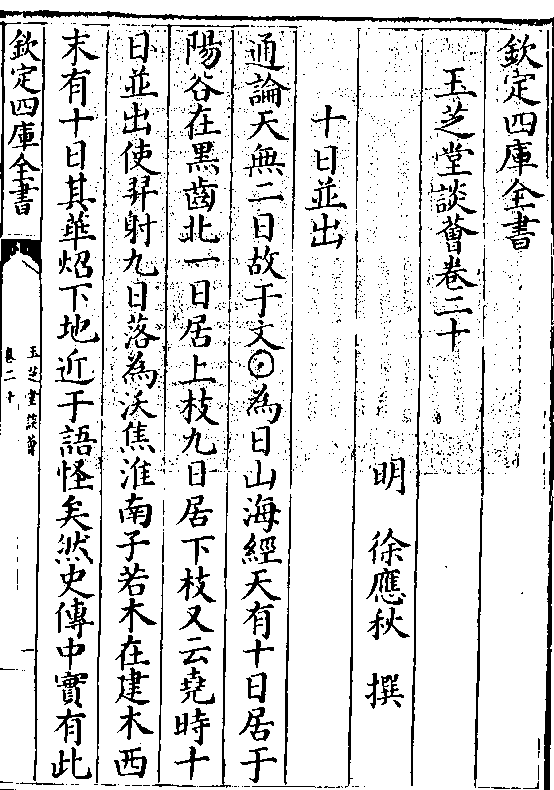 欽定四庫全書
玉芝堂談薈卷二十
明 徐應秋 撰
十日並出
通論天無二日故于文☉為日山海經天有十日居于
陽谷在黑齒北一日居上枝九日居下枝又云堯時十
日並出使羿射九日落為沃焦淮南子若木在建木西
末有十日其華炤下地近于語怪矣然史傳中實有此
欽定四庫全書
玉芝堂談薈
卷二十
一